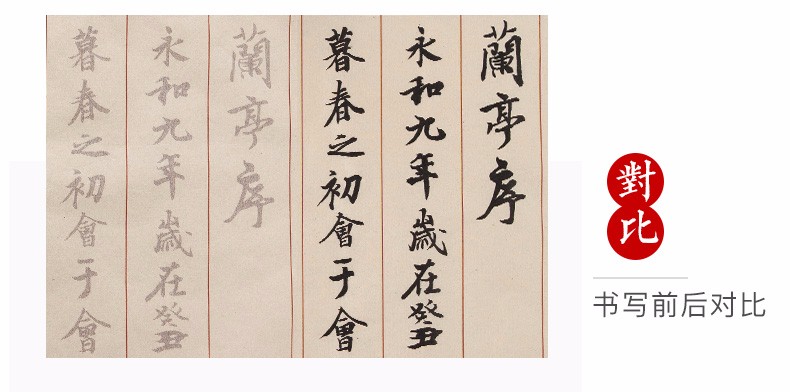 蘭亭序
永和九年歲在癸丑
暮春之初會于會
蘭亭序
永和九年歲在癸丑
暮春之初會于會
對比
书写前后对比